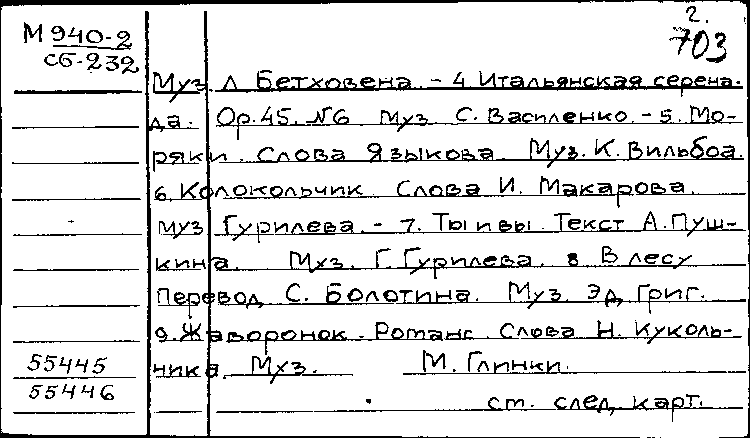 2.
М 940-2
сб-232
703
Муз. Л Бетховена. - 4. Итальянская серена-
да. Ор. 45. №6 Муз. С. Василенко. - 5. Мо-
ряки. Слова Языкова. Муз. К. Вильбоа.
6. Колокольчик. Слова И. Макарова.
муз Гурилева. - 7. Ты и вы. Текст А. Пуш-
кина. Муз. Г. Гурилева. 8 В лесу
Перевод С. Болотина. Муз. Эд. Григ.
9. Жаворонок. Романс Слова Н. Куколь-
ника. Муз. М. Глинки.
55445
55446
ст. след. карт.